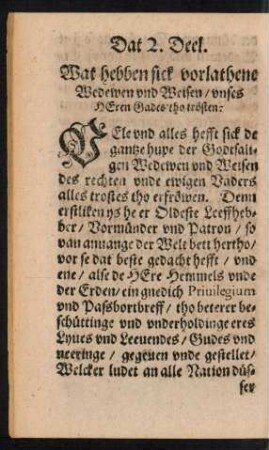 Dat 2. Deel.
Wat hebben sick vorlathene
Wedewen vnd Weisen / vnses
HEren Gades tho trösten?
VEle vnd alles hefft sick de
gantze hupe der Godtsali-
gen Wedewen vnd Weisen
des rechten vnde ewigen Vaders
alles trostes tho erfröwen. Denn
erstliken ys he er Oldeste Leeffheb-
ber / Vormünder vnd Patron / so
van anuange der Welt bett hertho /
vor se dat beste gedacht hefft / vnd
ene / alse de HEre Hemmels vnde
der Erden / ein gnedich Priuilegium
vnd Passbortbreff / tho beterer be-
schüttinge vnd vnderholdinge eres
Lyues vnd Leeuendes / Gudes vnd
neeringe / gegeuen vnde gestellet /
Welcker ludet an alle Nation düs-
ser